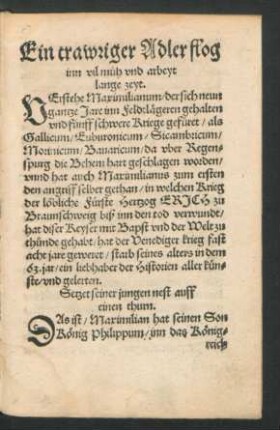 Ein trawriger Adler flog
inn vil müh vnd arbeyt
lange zeyt.
VErstehe Maximilianum/ der sich neun
gantze Jare inn feldtlägeren gehalten
vnd fünff schwere Kriege gefüret/ als
Gallicum/ Euburonicum/ Sicambricum/
Morinicum/ Bauaricum/ da vber Regen-
spurg die Behem hart geschlagen worden/
vnnd hat auch Maximilianus zum ersten
den angriff selber gethan/ in welchen Krieg
der löbliche Fürste Hertzog ERICH zu
Braunschweig biß inn den tod verwundt/
hat diser Keyser mit Bapst vnd der Welt zu
thünde gehabt/ hat der Venediger krieg fast
acht jare geweret/ starb seines alters in dem
63. jar/ ein liebhaber der Historien aller kün-
ste/ vnd gelerten.
Setzet seiner jungen nest auff
einen thurn.
DAs ist/ Maximilian hat seinen Son
König Philippum/ inn das König-
reich